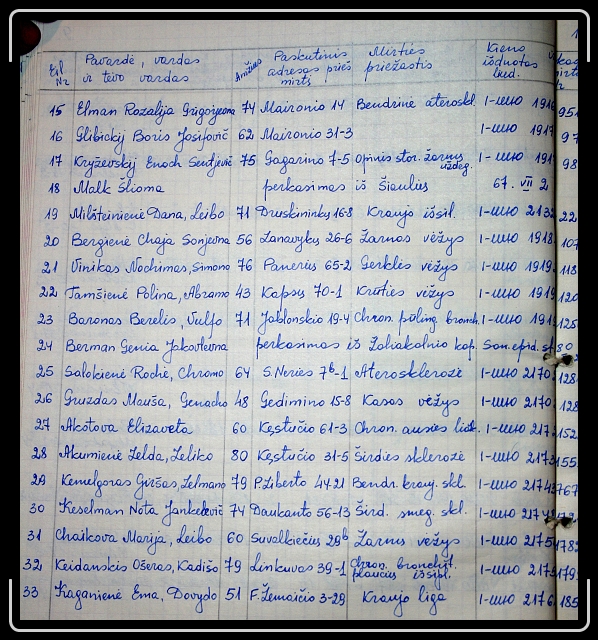 Eil Nr Pavardė, vardas ir tėvo vardas Amžius Paskutinis adresas prieš mirtį Mirties priežastis Kieno išduotas liud.
15 Elman Rozalija Grigorjevna 74 Maironio 14 Bendrinė ateroskl 1-mno 1916 951
16 Glibickij Boris Josifovič 62 Maironio 31-3 1-mno 1917 97
17 Kryževskij Enoch 75 Gagarino 7-5 opinis stor. žarnų uždeg. 1-mno 191 98
18 Malk Šlioma perkasimas iš Šiaulių 67. VII 2
19 Milšteinienė Dana, Leibo 71 Druskininkų 16-8 Kraujo išsil. 1-mno 2132 22
20 Bergienė Chaja 56 Lanavykų 26-6 Žarnos vėžys 1-mno 1918 107
21 Vinikas Nochimas, Simono 76 Panerių 65-2 Gerklės vėžys 1-mno 1919 118
22 Tamšienė Polina, Abramo 43 Kapsų 70-1 Krūties vėžys 1-mno 1919 120
23 Baronas Berelis, Vulfo 71 Jablonskio 19-4 Chron. pūling. bronch. 1-mno 191 125
24 Berman Genia Jakovlevna perkasimas iš Žaliakalnio kap. San.epid.st 80
25 Salokienė Rodė, Chromo 64 S.Nėries 7ᵇ-1 Aterosklerozė 1-mno 2170 128
26 Gruzdas Mauša, Genacho 48 Gedimino 15-8 Kasos vėžys 1-mno 2170 128
27 Akstova Elizaveta 60 Kęstučio 61-3 Chron. ausies 1-mno 217 152
28 Akumienė Zelda, Zeliko 80 Kęstučio 31-5 Širdies sklerozė 1-mno 2173 155
29 Kemelgoras Giršas, Zelmano 79 P.Ziberto 44-21 Bendr. krauj. skl. 1-mno 2174 767
30 Keselman Nota Jankelevič 74 Daukanto 56-13 Šird. smeg. skl. 1-mno 2174
31 Chaikova Marija, Leibo 60 Suvalkiečių 29ᵇ Žarnų vėžys 1-mno 2175 1782
32 Keidanskis Ošeras, Kadišo 79 Linkuvos 39-1 Chron. bronchit. plaučių išsipl. 1-mno 2175 179
33 Kaganienė Ema, Dovydo 51 F.Žemaičio 3-29 Kraujo liga 1-mno 2176 185